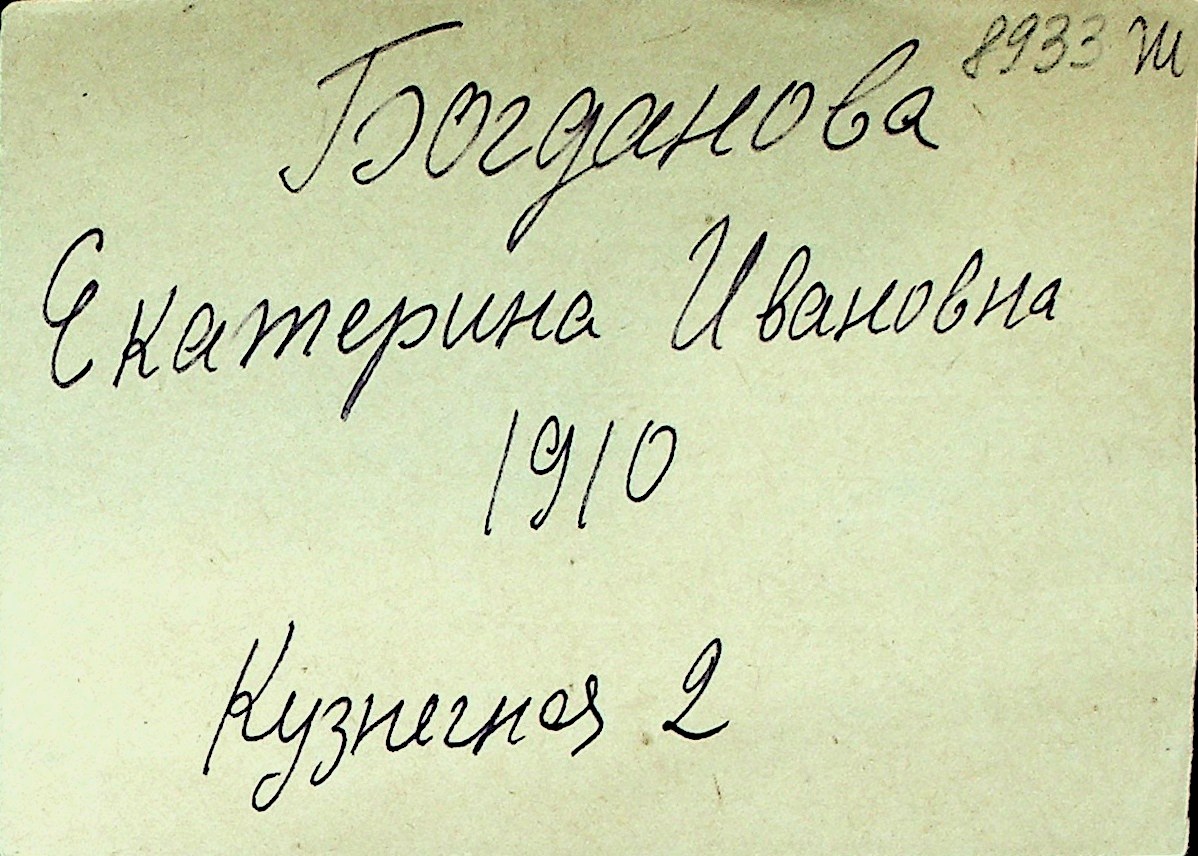 8933 Ж
Богданова
Екатерина Ивановна
1910
Кузнечная 2